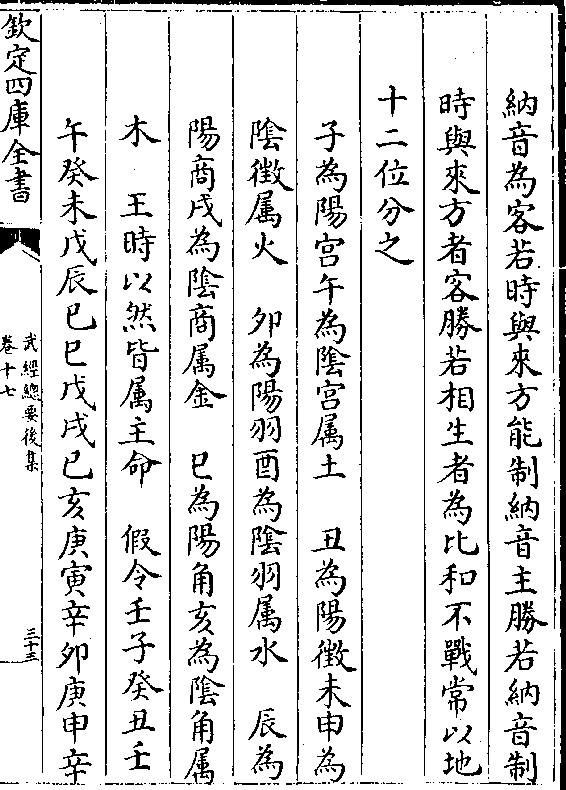 納音為客若時與來方能制納音主勝若納音制
時與來方者客勝若相生者為比和不戰常以地
十二位分之
子為陽宫午為陰宫属土　丑為陽徴未申為
陰徴属火　卯為陽羽酉為陰羽属水　辰為
陽商戌為陰商属金　巳為陽角亥為陰角属
木　王時以然皆属主命　假令壬子癸丑壬
午癸未戊辰巳巳戊戌巳亥庚寅辛卯庚申辛
欽定四庫全書
武經總要後集
卷十七
三十三